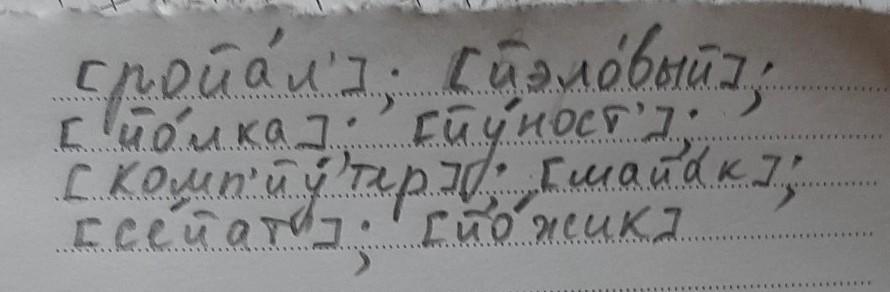 [ройа́л']; [йэло́вый];
[йо́лка]; [йу́ност'];
[комп'йу́'тэр]; [май́ак];
[се́йат']; [йо́жик]